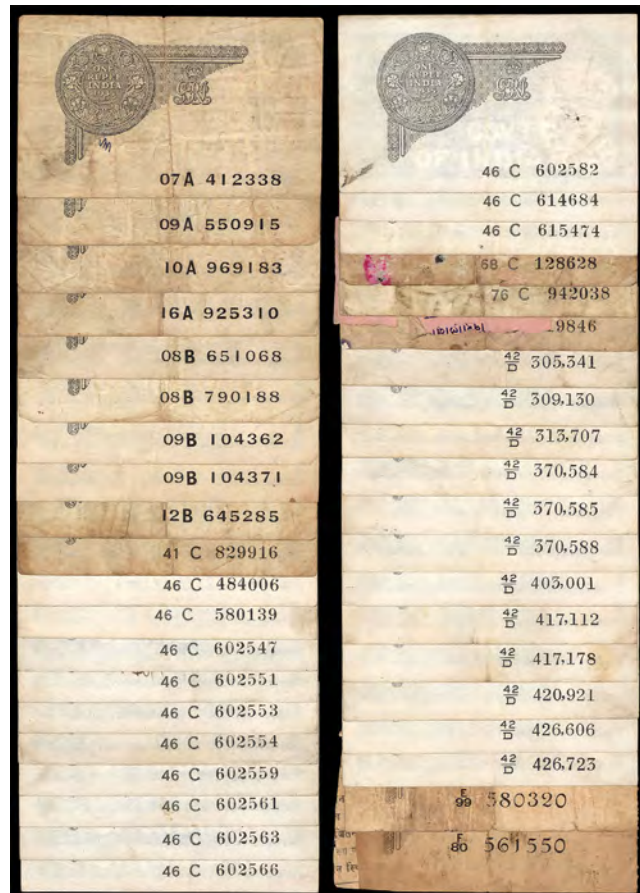 ONE
RUPEE
INDIA
07A 412338
09A 550915
10A 969183
16A 925310
08B 651068
08B 790188
09B 104362
09B 104371
12B 645285
41 C 829916
46 C 484006
46 C 580139
46 C 602547
46 C 602551
46 C 602553
46 C 602554
46 C 602559
46 C 602561
46 C 602563
46 C 602566
ONE
RUPEE
INDIA
46 C 602582
46 C 614684
46 C 615474
68 C 128628
76 C 942038
9846
42/D 305,341
42/D 309,130
42/D 313,707
42/D 370,584
42/D 370,585
42/D 370,588
42/D 403,001
42/D 417,112
42/D 417,178
42/D 420,921
42/D 426,606
42/D 426,723
F/99 580320
F/80 561550